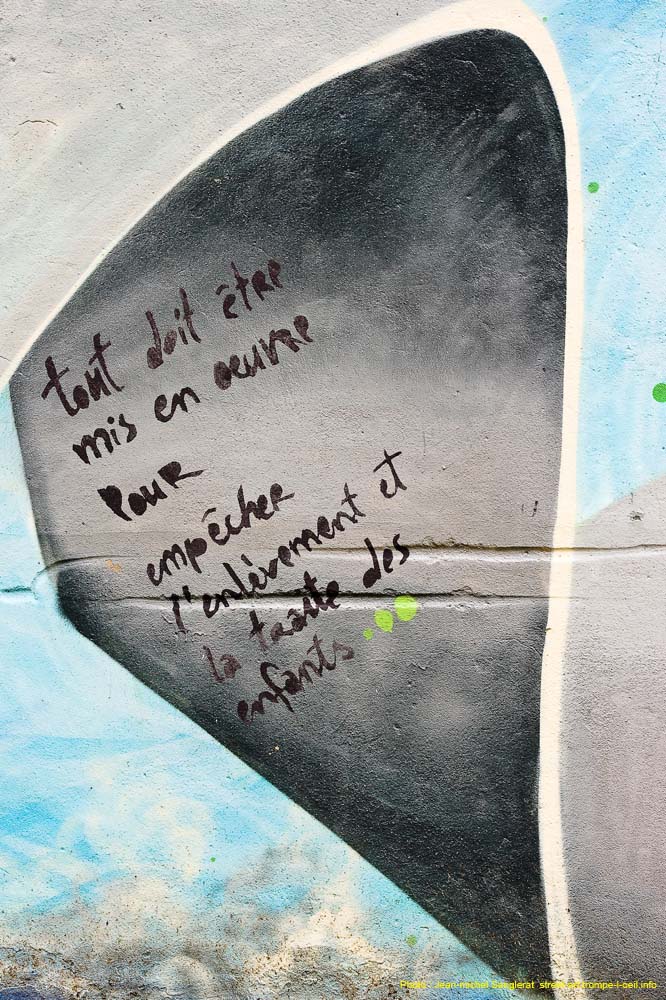 tout doit être
mis en oeuvre
Pour
empêcher
l'enlèvement et
la traite des
enfants
Photo : Jean-michel Sanglerat street-art-trompe-l-oeil.info